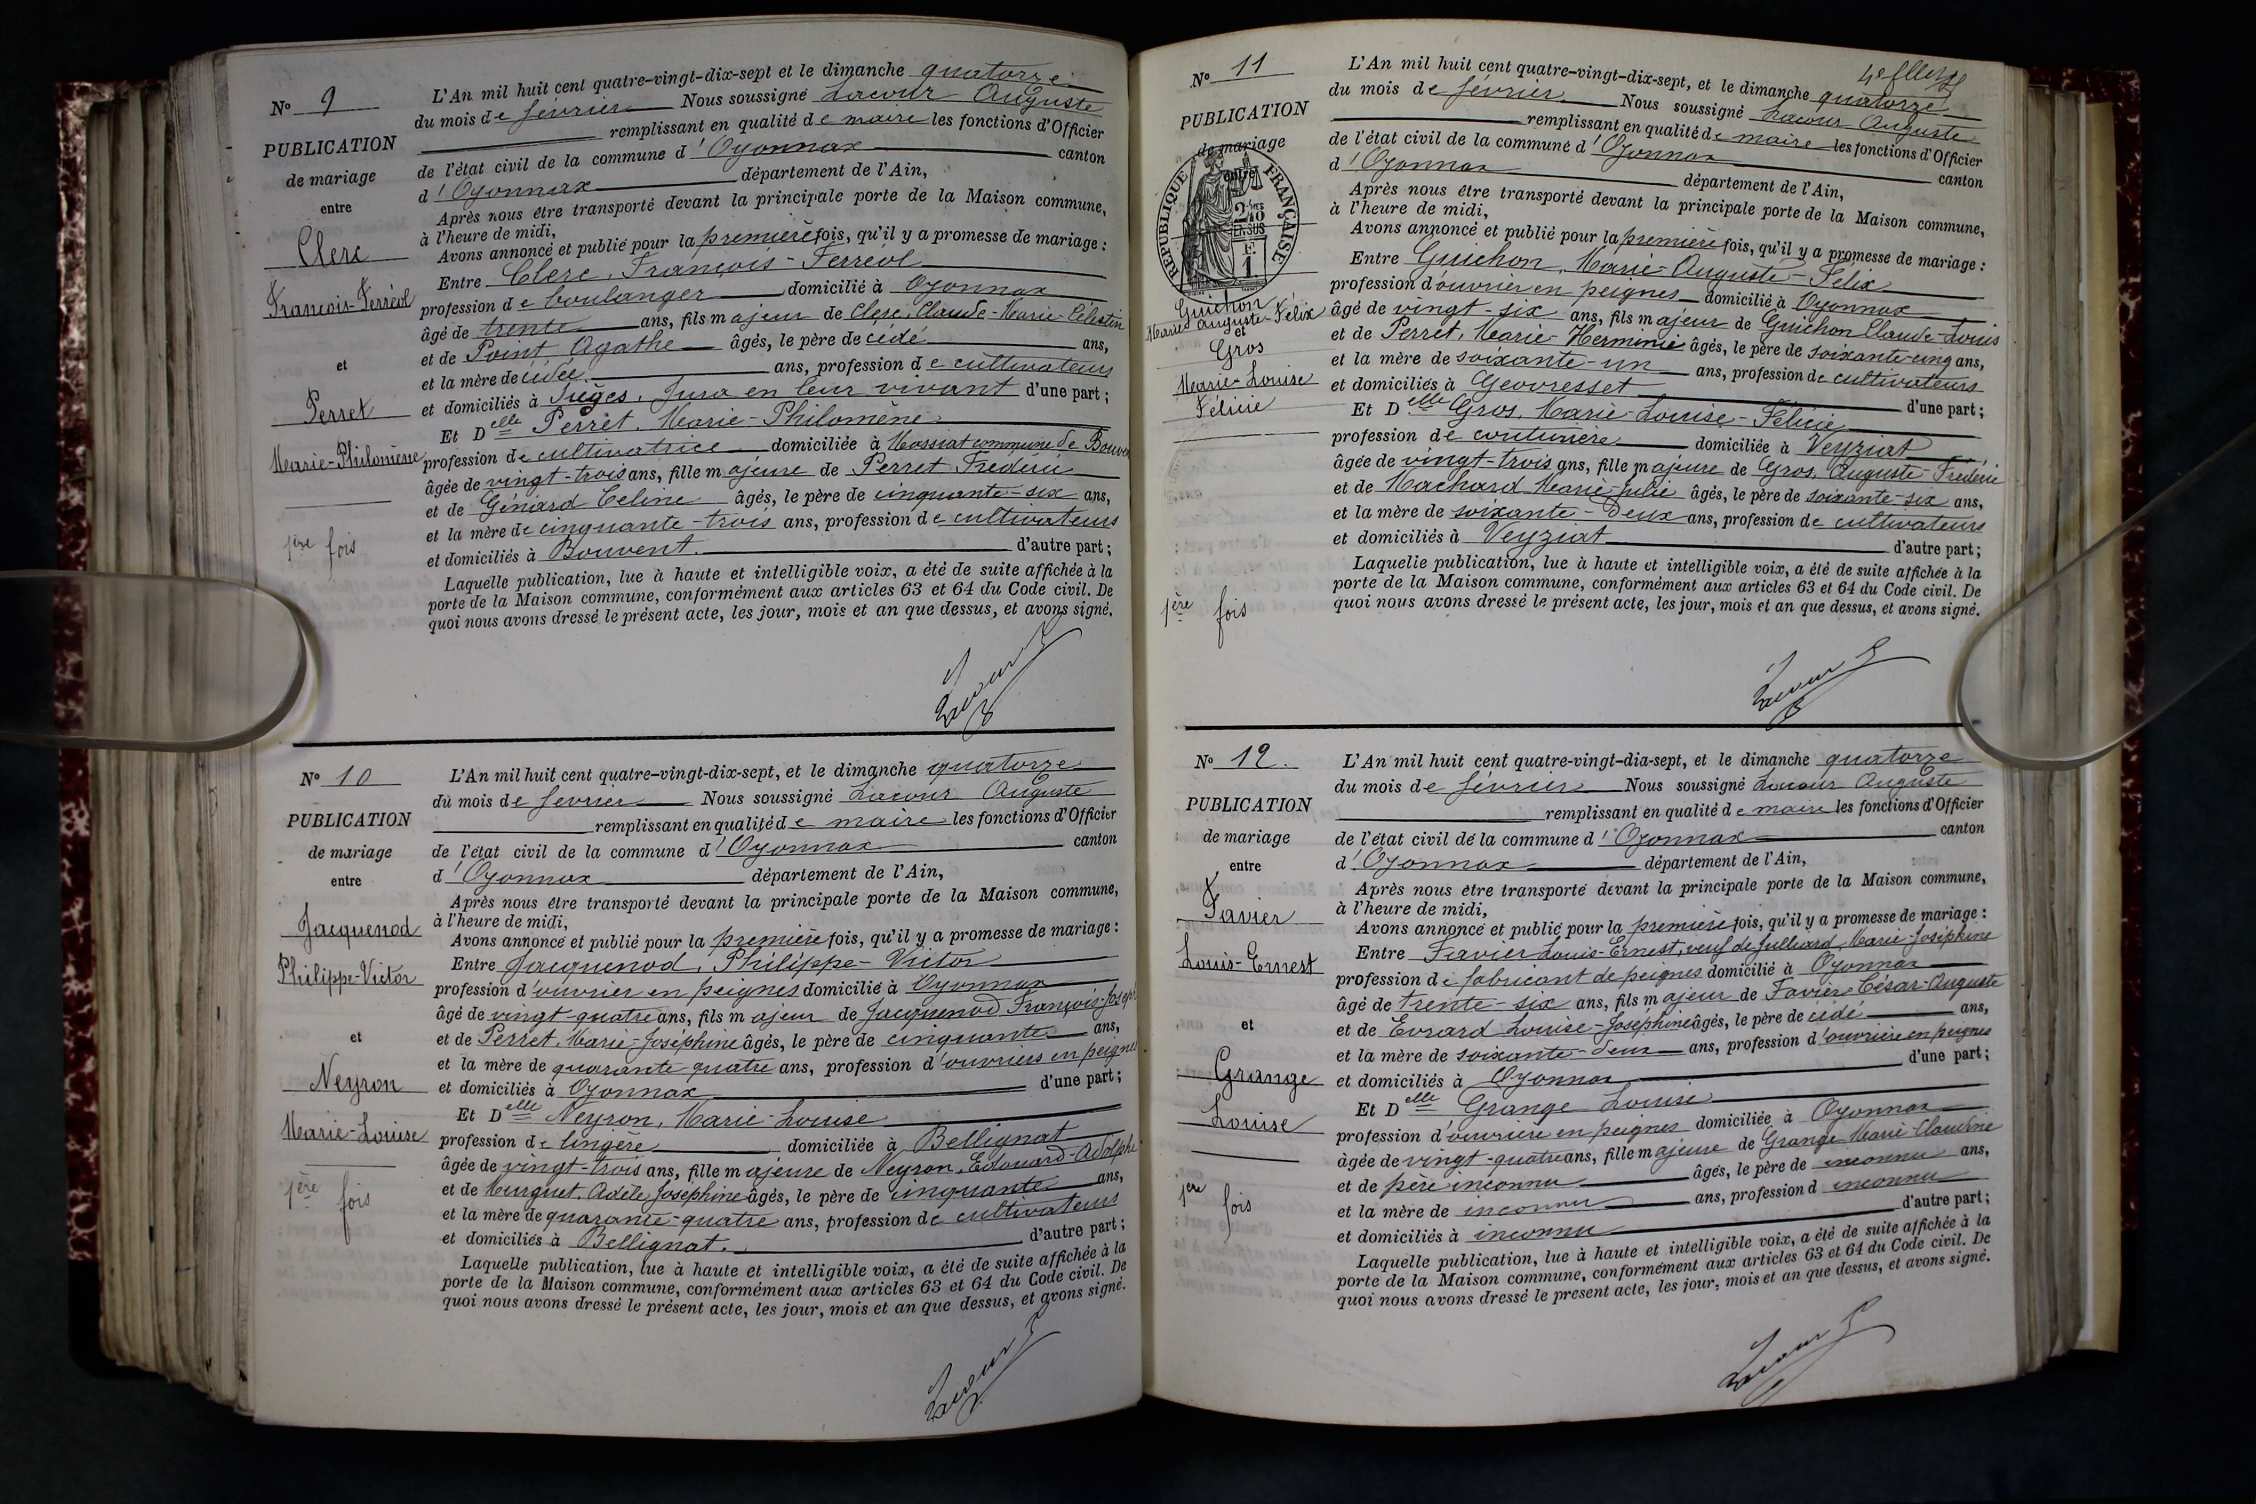 N° 9
PUBLICATION
de mariage
entre
Clerc
François-Ferréol
et
Perret
Marie-Philomène
1ère fois
L'An mil huit cent quatre-vingt-dix-sept et le dimanche quatorze
du mois de février Nous soussigné Lacour Auguste
remplissant en qualité de maire les fonctions d'Officier
de l'état civil de la commune d'Oyonnax canton
d'Oyonnax département de l'Ain,
Après nous être transporté devant la principale porte de la Maison commune,
à l'heure de midi,
Avons annoncé et publié pour la première fois, qu'il y a promesse de mariage :
Entre Clerc, François-Ferréol
profession de boulanger domicilié à Oyonnax
âgé de trente ans, fils majeur de Clerc, Claude-Marie-Célestin
et de Point Agathe âgés, le père de cédé ans,
et la mère de cédée ans, profession de cultivateurs
et domiciliés à Sièges, Jura en leur vivant d'une part ;
Et Delle Perret, Marie-Philomène
profession de cultivatrice domiciliée à Massiat commune de Bouvent
âgée de vingt-trois ans, fille majeure de Perret Frédéric
et de Génard Celine âgés, le père de cinquante-six ans,
et la mère de cinquante-trois ans, profession de cultivateurs
et domiciliés à Bouvent. d'autre part ;
Laquelle publication, lue à haute et intelligible voix, a été de suite affichée à la
porte de la Maison commune, conformément aux articles 63 et 64 du Code civil. De
quoi nous avons dressé le présent acte, les jour, mois et an que dessus, et avons signé.
Lacour
N° 10
PUBLICATION
de mariage
entre
Jacquenod
Philippe-Victor
et
Neyron
Marie-Louise
1ère fois
L'An mil huit cent quatre-vingt-dix-sept, et le dimanche quatorze
du mois de fevrier Nous soussigné Lacour Auguste
remplissant en qualité de maire les fonctions d'Officier
de l'état civil de la commune d'Oyonnax canton
d'Oyonnax département de l'Ain,
Après nous être transporté devant la principale porte de la Maison commune,
à l'heure de midi,
Avons annoncé et publié pour la première fois, qu'il y a promesse de mariage :
Entre Jacquenod, Philippe-Victor
profession d'ouvrier en peignes domicilié à Oyonnax
âgé de vingt-quatre ans, fils majeur de Jacquenod François-Joseph
et de Perret, Marie-Joséphine âgés, le père de cinquante ans,
et la mère de quarante quatre ans, profession d'ouvriers en peignes
et domiciliés à Oyonnax d'une part ;
Et Delle Neyron, Marie-Louise
profession de lingère domiciliée à Bellignat
âgée de vingt-trois ans, fille majeure de Neyron, Edouard-Adolphe
et de Murguet, Adèle Joséphine âgés, le père de cinquante ans,
et la mère de quarante-quatre ans, profession de cultivateurs
et domiciliés à Bellignat. d'autre part ;
Laquelle publication, lue à haute et intelligible voix, a été de suite affichée à la
porte de la Maison commune, conformément aux articles 63 et 64 du Code civil. De
quoi nous avons dressé le présent acte, les jour, mois et an que dessus, et avons signé.
Lacour
N° 11
PUBLICATION
de mariage
entre
RÉPUBLIQUE FRANÇAISE
Guichon
Marie Auguste-Félix
et
Gros
Marie-Louise
Félicie
1ère fois
L'An mil huit cent quatre-vingt-dix-sept, et le dimanche quatorze
du mois de février Nous soussigné Lacour Auguste
remplissant en qualité de maire les fonctions d'Officier
de l'état civil de la commune d'Oyonnax canton
d'Oyonnax département de l'Ain,
Après nous être transporté devant la principale porte de la Maison commune,
à l'heure de midi,
Avons annoncé et publié pour la première fois, qu'il y a promesse de mariage :
Entre Guichon, Marie-Auguste-Félix
profession d'ouvrier en peignes domicilié à Oyonnax
âgé de vingt-six ans, fils majeur de Guichon Claude-Louis
et de Perret, Marie-Herminie âgés, le père de soixante-cinq ans,
et la mère de soixante-un ans, profession de cultivateurs
et domiciliés à Geovresset d'une part ;
Et Delle Gros, Marie-Louise-Félicie
profession de couturière domiciliée à Veyziat
âgée de vingt-trois ans, fille majeure de Gros, Auguste-Frédéric
et de Machard Marie-Julie âgés, le père de soixante-six ans,
et la mère de soixante-deux ans, profession de cultivateurs
et domiciliés à Veyziat d'autre part ;
Laquelle publication, lue à haute et intelligible voix, a été de suite affichée à la
porte de la Maison commune, conformément aux articles 63 et 64 du Code civil. De
quoi nous avons dressé le présent acte, les jour, mois et an que dessus, et avons signé.
Lacour
N° 12.
PUBLICATION
de mariage
entre
Favier
Louis-Ernest
et
Grange
Louise
1ère fois
L'An mil huit cent quatre-vingt-dia-sept, et le dimanche quatorze
du mois de février Nous soussigné Lacour Auguste
remplissant en qualité de maire les fonctions d'Officier
de l'état civil de la commune d'Oyonnax canton
d'Oyonnax département de l'Ain,
Après nous être transporté devant la principale porte de la Maison commune,
à l'heure de midi,
Avons annoncé et publié pour la première fois, qu'il y a promesse de mariage :
Entre Favier Louis-Ernest, veuf de Julliard, Marie-Joséphine
profession de fabricant de peignes domicilié à Oyonnax
âgé de trente-six ans, fils majeur de Favier César-Auguste
et de Evrard Louise-Joséphine âgés, le père de cédé ans,
et la mère de soixante-deux ans, profession d'ouvrière en peignes
et domiciliés à Oyonnax d'une part ;
Et Delle Grange Louise
profession d'ouvrière en peignes domiciliée à Oyonnax
âgée de vingt-quatre ans, fille majeure de Grange Marie-Claudine
et de père inconnu âgés, le père de inconnu ans,
et la mère de inconnu ans, profession d inconnu
et domiciliés à inconnu d'autre part ;
Laquelle publication, lue à haute et intelligible voix, a été de suite affichée à la
porte de la Maison commune, conformément aux articles 63 et 64 du Code civil. De
quoi nous avons dressé le présent acte, les jour, mois et an que dessus, et avons signé.
Lacour